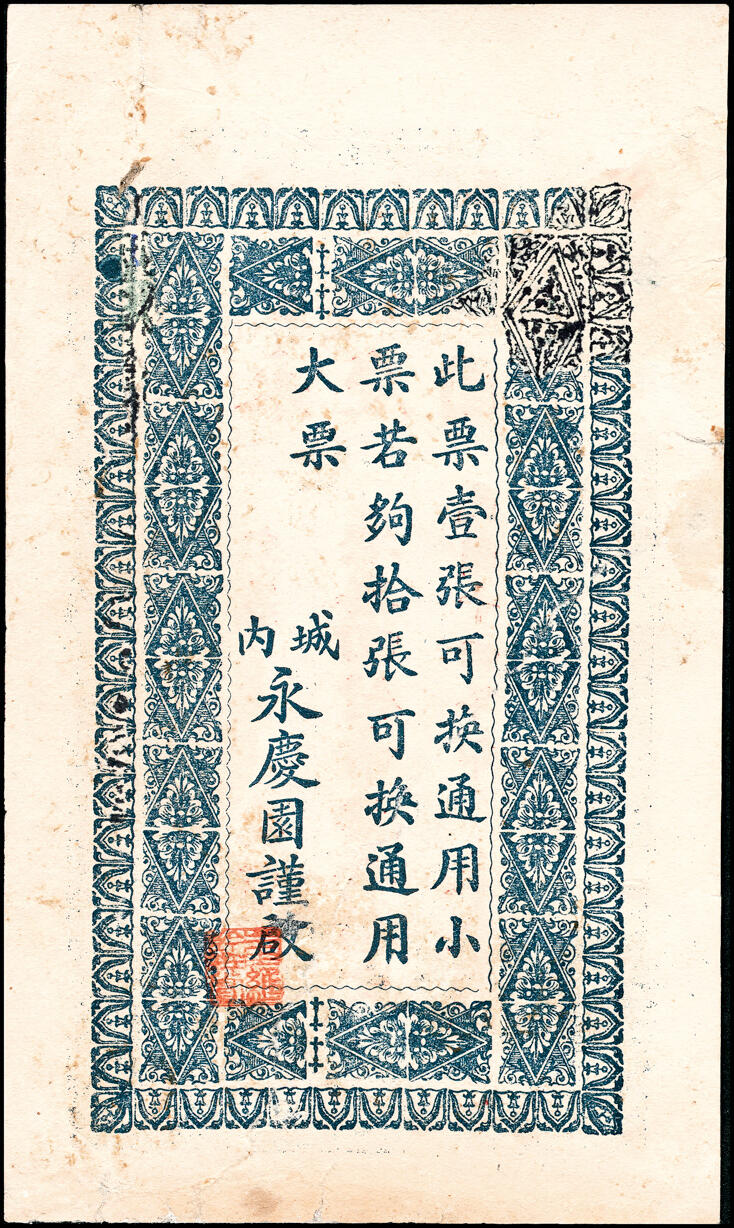 此票壹張可换通用小
票若夠拾張可换通用
大票
城内
永慶園謹啟